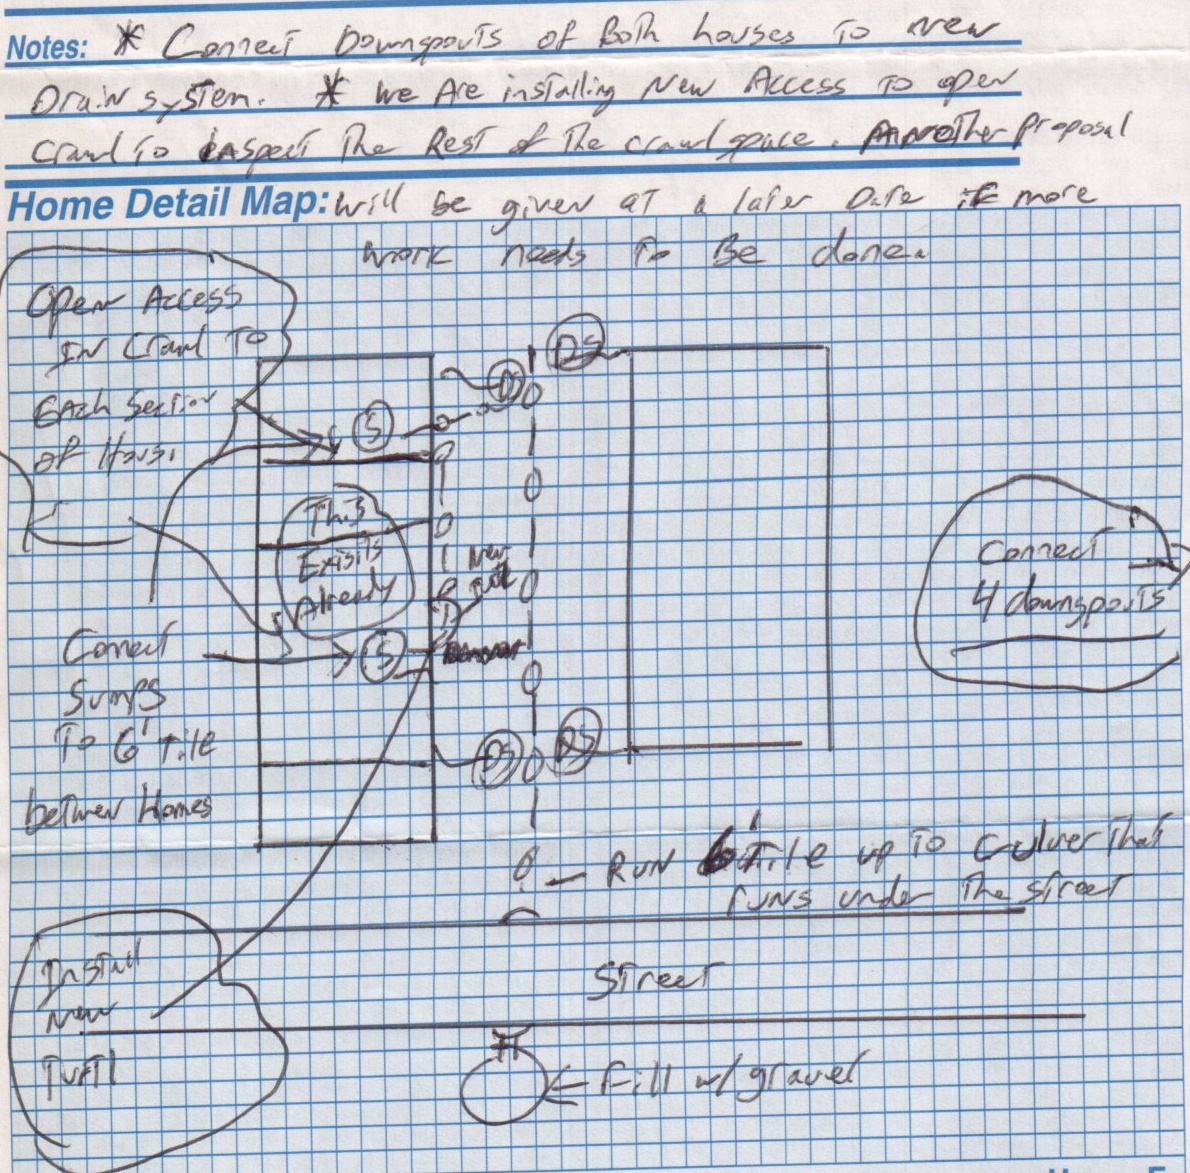 Notes: * Connect Downspouts of Both houses To new
Drain system. * we Are installing New Access To open
Crawl To inspect The Rest of The crawl space. Another Proposal
Home Detail Map: will be given at a later Date if more
work needs To Be done.
Open Access
In Crawl To
Each Section
of House
DS
DS
S
This
Exisits
Already
New
Connect
4 downspouts
Connect
Sumps
To 6' Tile
between Homes
S
DS
DS
Run 6' Tile up To culver That
runs under The street
Install
New
Tuff1
Street
Fill w/ gravel